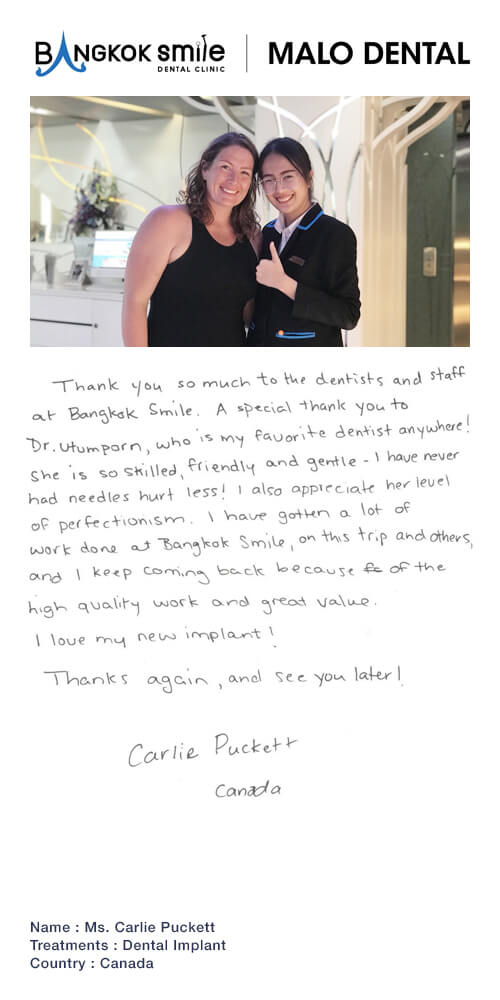 BANGKOK smile
DENTAL CLINIC
MALO DENTAL
Thank you so much to the dentists and staff
at Bangkok Smile. A special thank you to
Dr. Utumporn, who is my favorite dentist anywhere!
She is so skilled, friendly and gentle - I have never
had needles hurt less! I also appreciate her level
of perfectionism. I have gotten a lot of
work done at Bangkok Smile, on this trip and others,
and I keep coming back because of the
high quality work and great value.
I love my new implant!
Thanks again, and see you later!
Carlie Puckett
Canada
Name : Ms. Carlie Puckett
Treatments : Dental Implant
Country : Canada